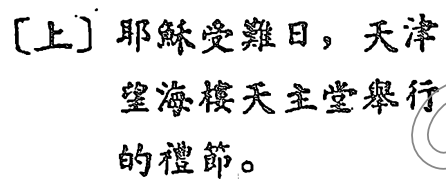 〔上〕耶穌受難日，天津
望海樓天主堂舉行
的禮節。